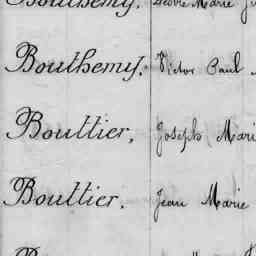 Bouthemy. Marie
Bouthemy. Victor Paul
Bouttier, Joseph Mari
Bouttier. Jean Marie